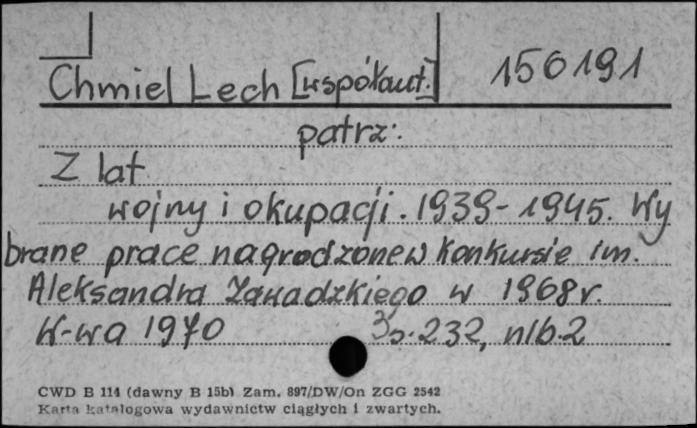 Chmiel Lech [współaut.] 150191
patrz:
Z lat
wojny i okupacji. 1939-1945. Wy
brane prace nagrodzone w konkursie im.
Aleksandra Zawadzkiego w 1968 r.
W-wa 1970 s. 232, nlb. 2
CWD B 114 (dawny B 15b) Zam. 897/DW/On ZGG 2542
Karta katalogowa wydawnictw ciągłych i zwartych.